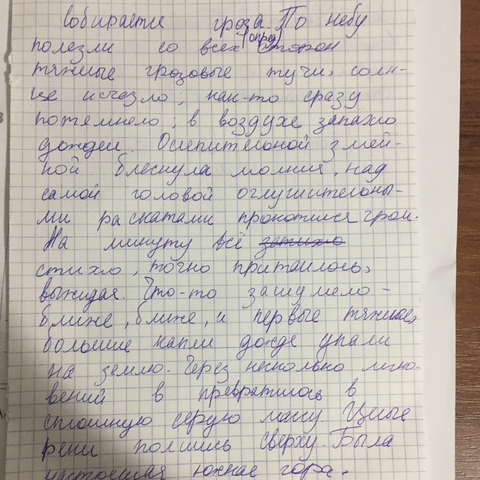 Собирается гроза. По небу
(опред)
ползли со всех сторон
тяжные грозовые тучи, солн-
це исчезло, как-то сразу
потемнело, в воздухе запахло
дождем. Ослепительной змей-
кой блеснула молния, над
самой головой оглушительны-
ми раскатами прокатился гром.
На минуту всё затихло
стихло, точно притаилось,
выжидая. Что-то зашумело -
ближе, ближе, и первые тяжные,
большие капли дождя упали
на землю. Через несколько мгно-
вений в превратилось в
сплошную серую массу Целые
реки полились сверху. Была
настоящая южная гора.